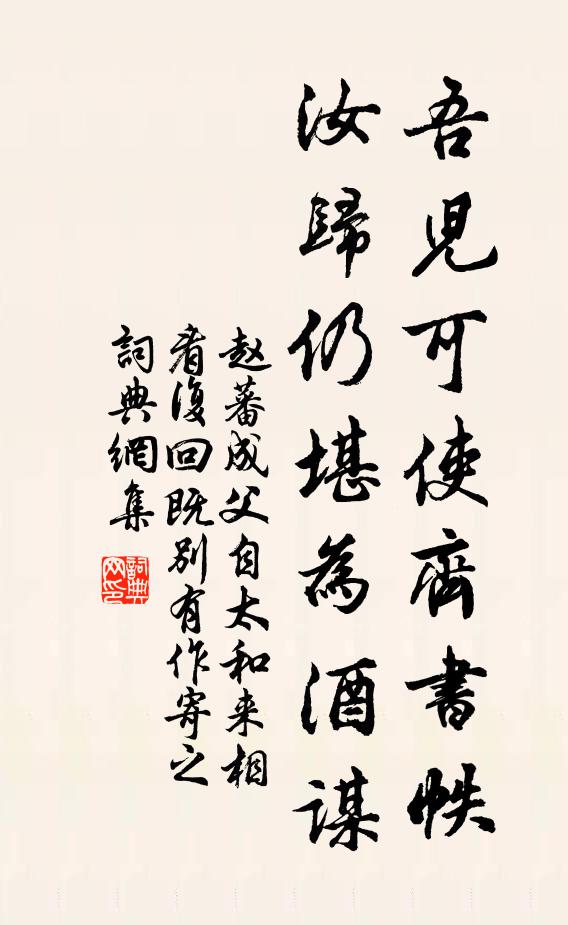 吾児可使齊書帙
汝歸仍堪為酒謀
赵蕃成父自太和来相
看復回既别有作寄之
詞典網集
詞典
网印